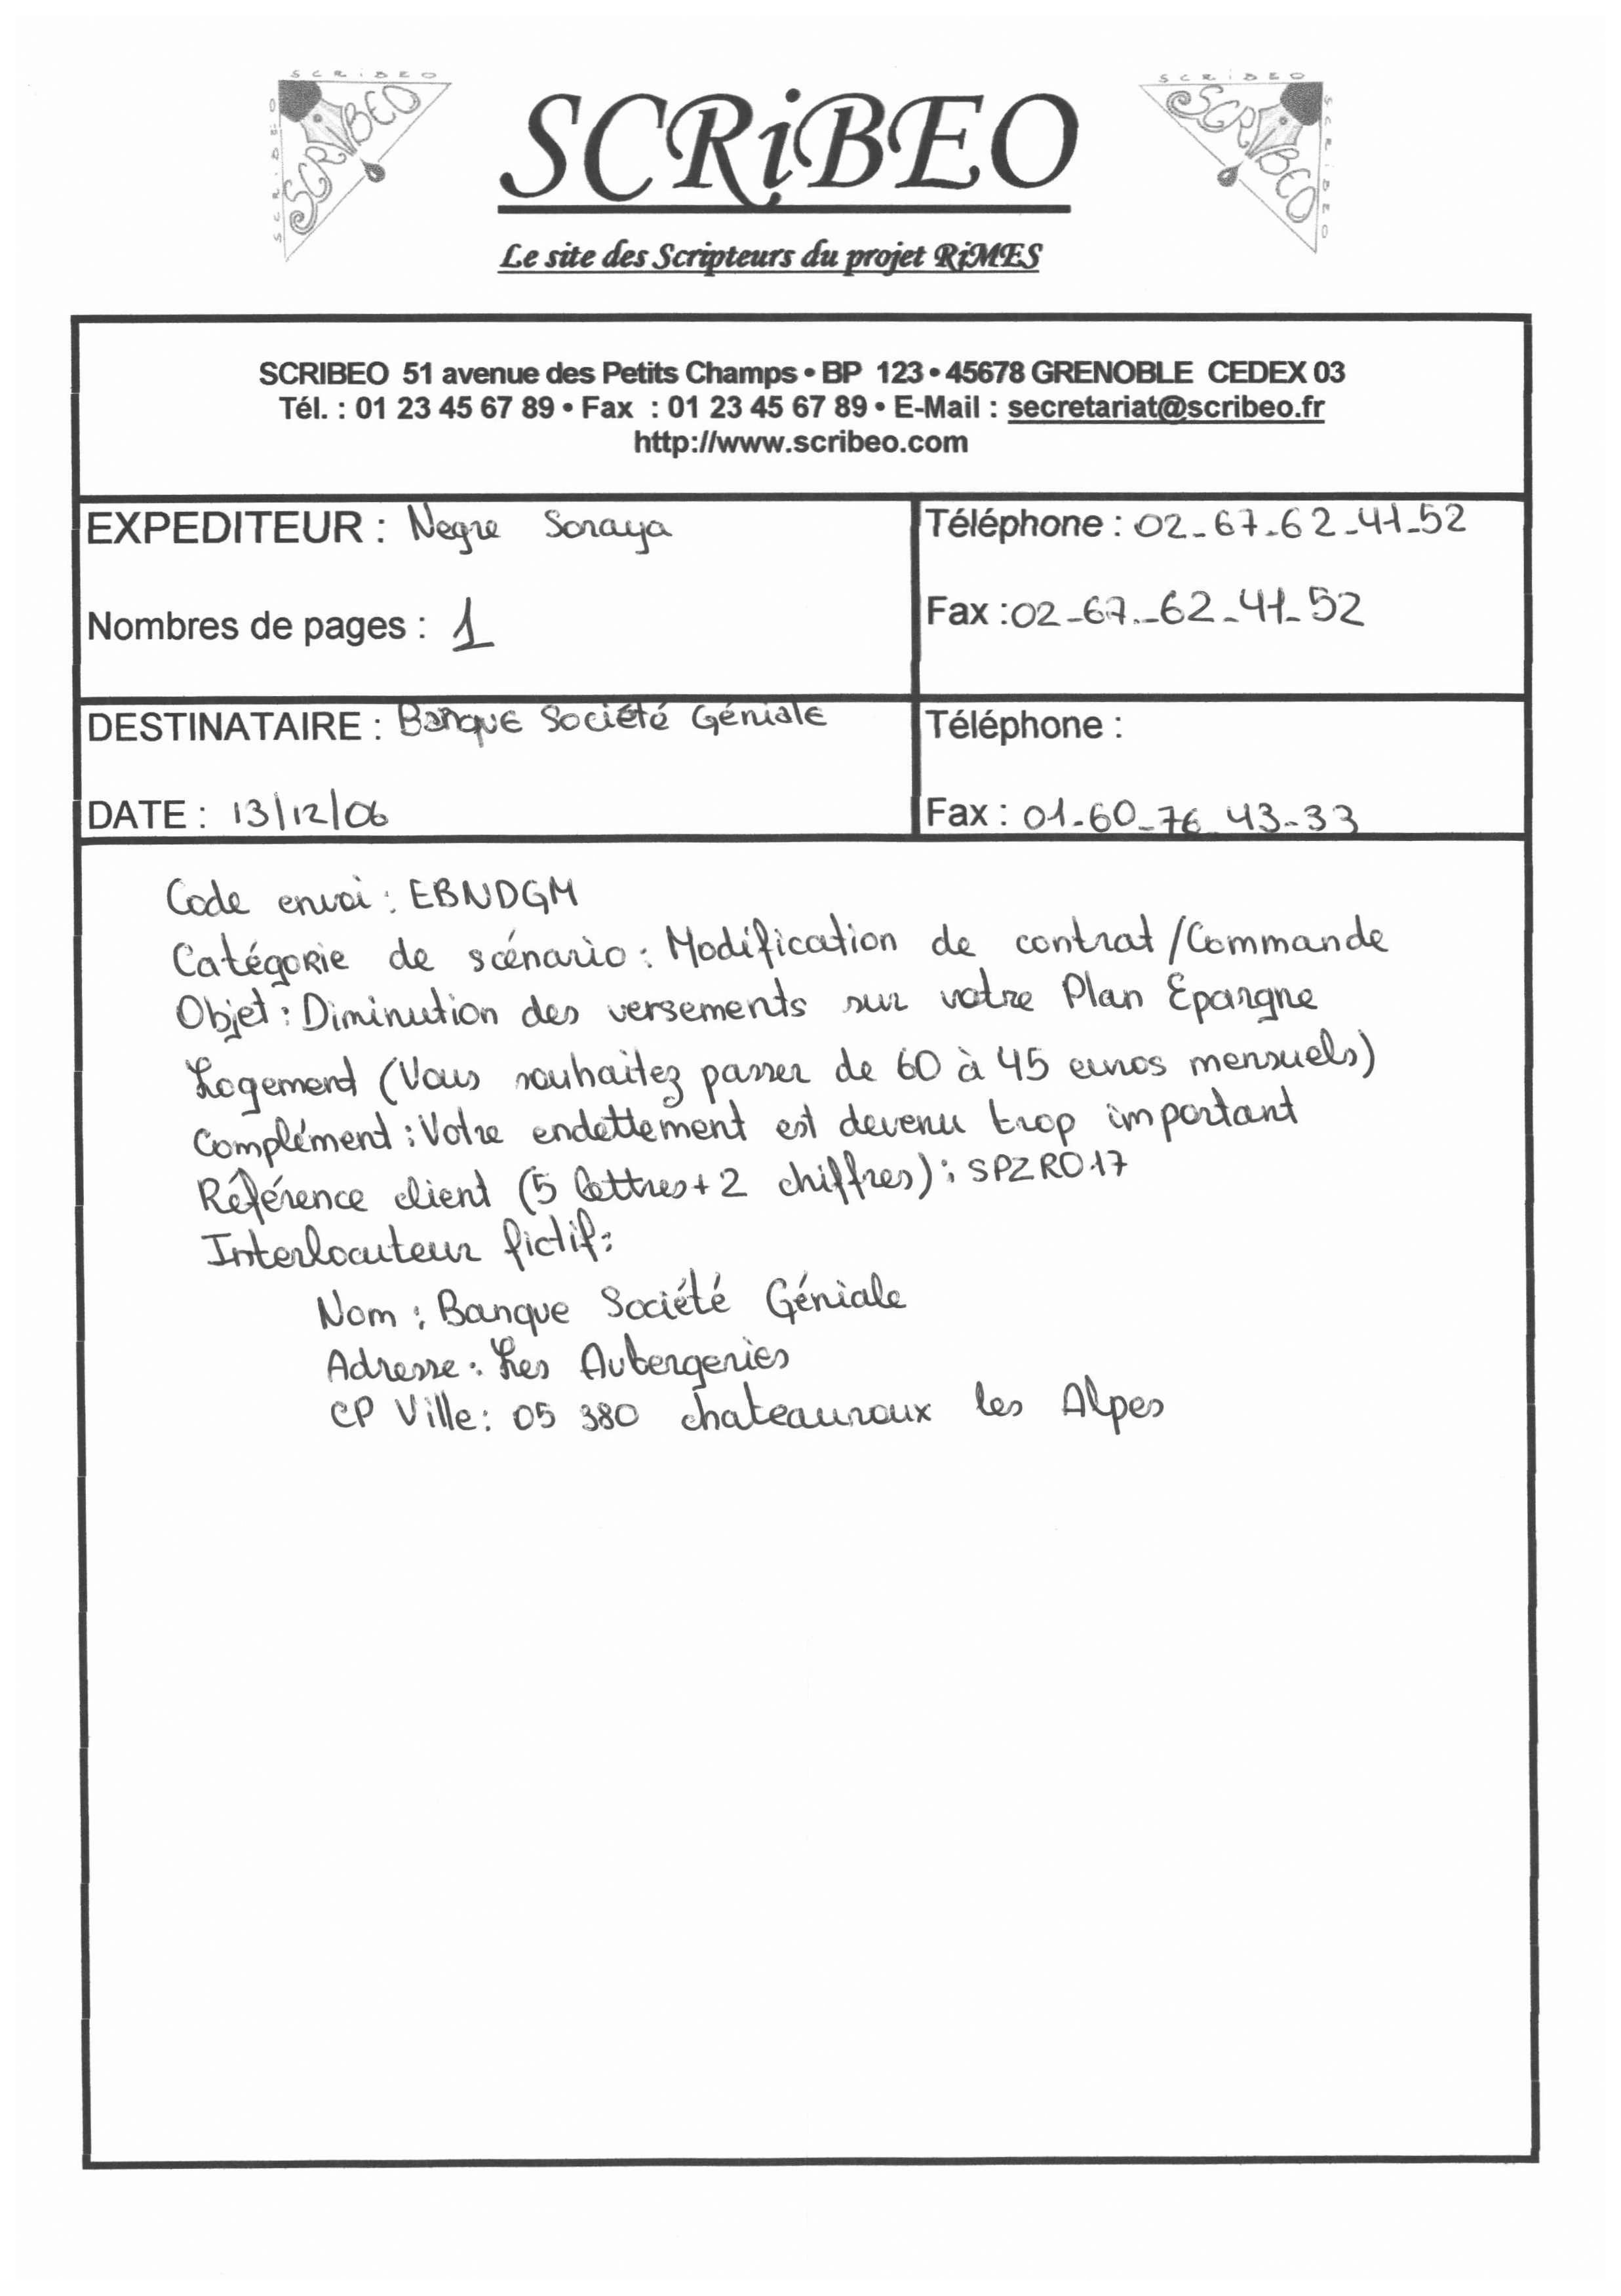 SCRiBEO
SCRiBEO
SCRiBEO
SCRiBEO
SCRiBEO
SCRiBEO
SCRiBEO
Le site des Scripteurs du projet RiMES
SCRIBEO 51 avenue des Petits Champs • BP 123 • 45678 GRENOBLE CEDEX 03
Tél. : 01 23 45 67 89 • Fax : 01 23 45 67 89 • E-Mail : secretariat@scribeo.fr
http://www.scribeo.com
EXPEDITEUR : Negre Soraya
Téléphone : 02-67-62-41-52
Nombres de pages : 1
Fax : 02-67-62-41-52
DESTINATAIRE : Banque Société Géniale
Téléphone :
DATE : 13/12/06
Fax : 01-60-76-43-33
Code envoi : EBNDGM
Catégorie de scénario : Modification de contrat/Commande
Objet : Diminution des versements sur votre Plan Epargne
Logement (Vous souhaitez passer de 60 à 45 euros mensuels)
Complément : Votre endettement est devenu trop important
Référence client (5 lettres + 2 chiffres) : SPZRO17
Interlocuteur fictif :
Nom : Banque Société Géniale
Adresse : Les Aubergeries
CP Ville : 05 380 chateauroux les Alpes